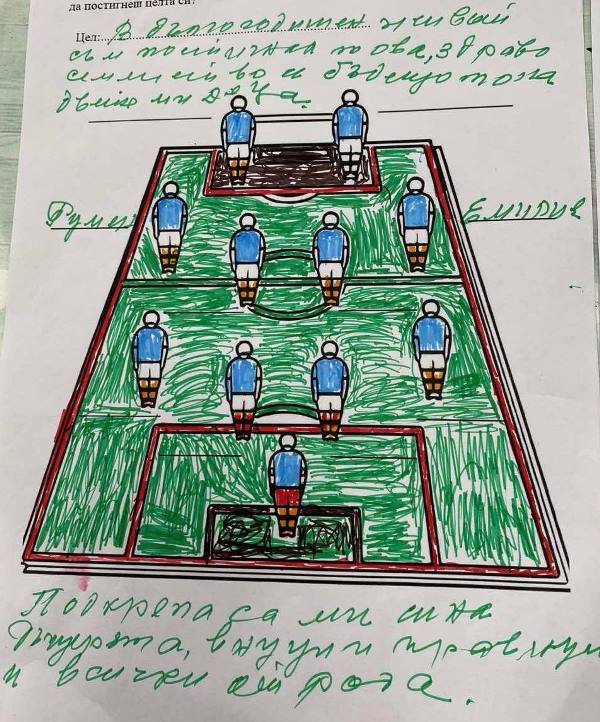 да постигнеш целта си?
Цел: В дългогодишен живот
съм постигнал това, здраво
семейство и бъдещо това
деца.
Румен
Емилия
Подкрепа са ми сина
дъщерята, внуци и правнуци
и всички от рода.